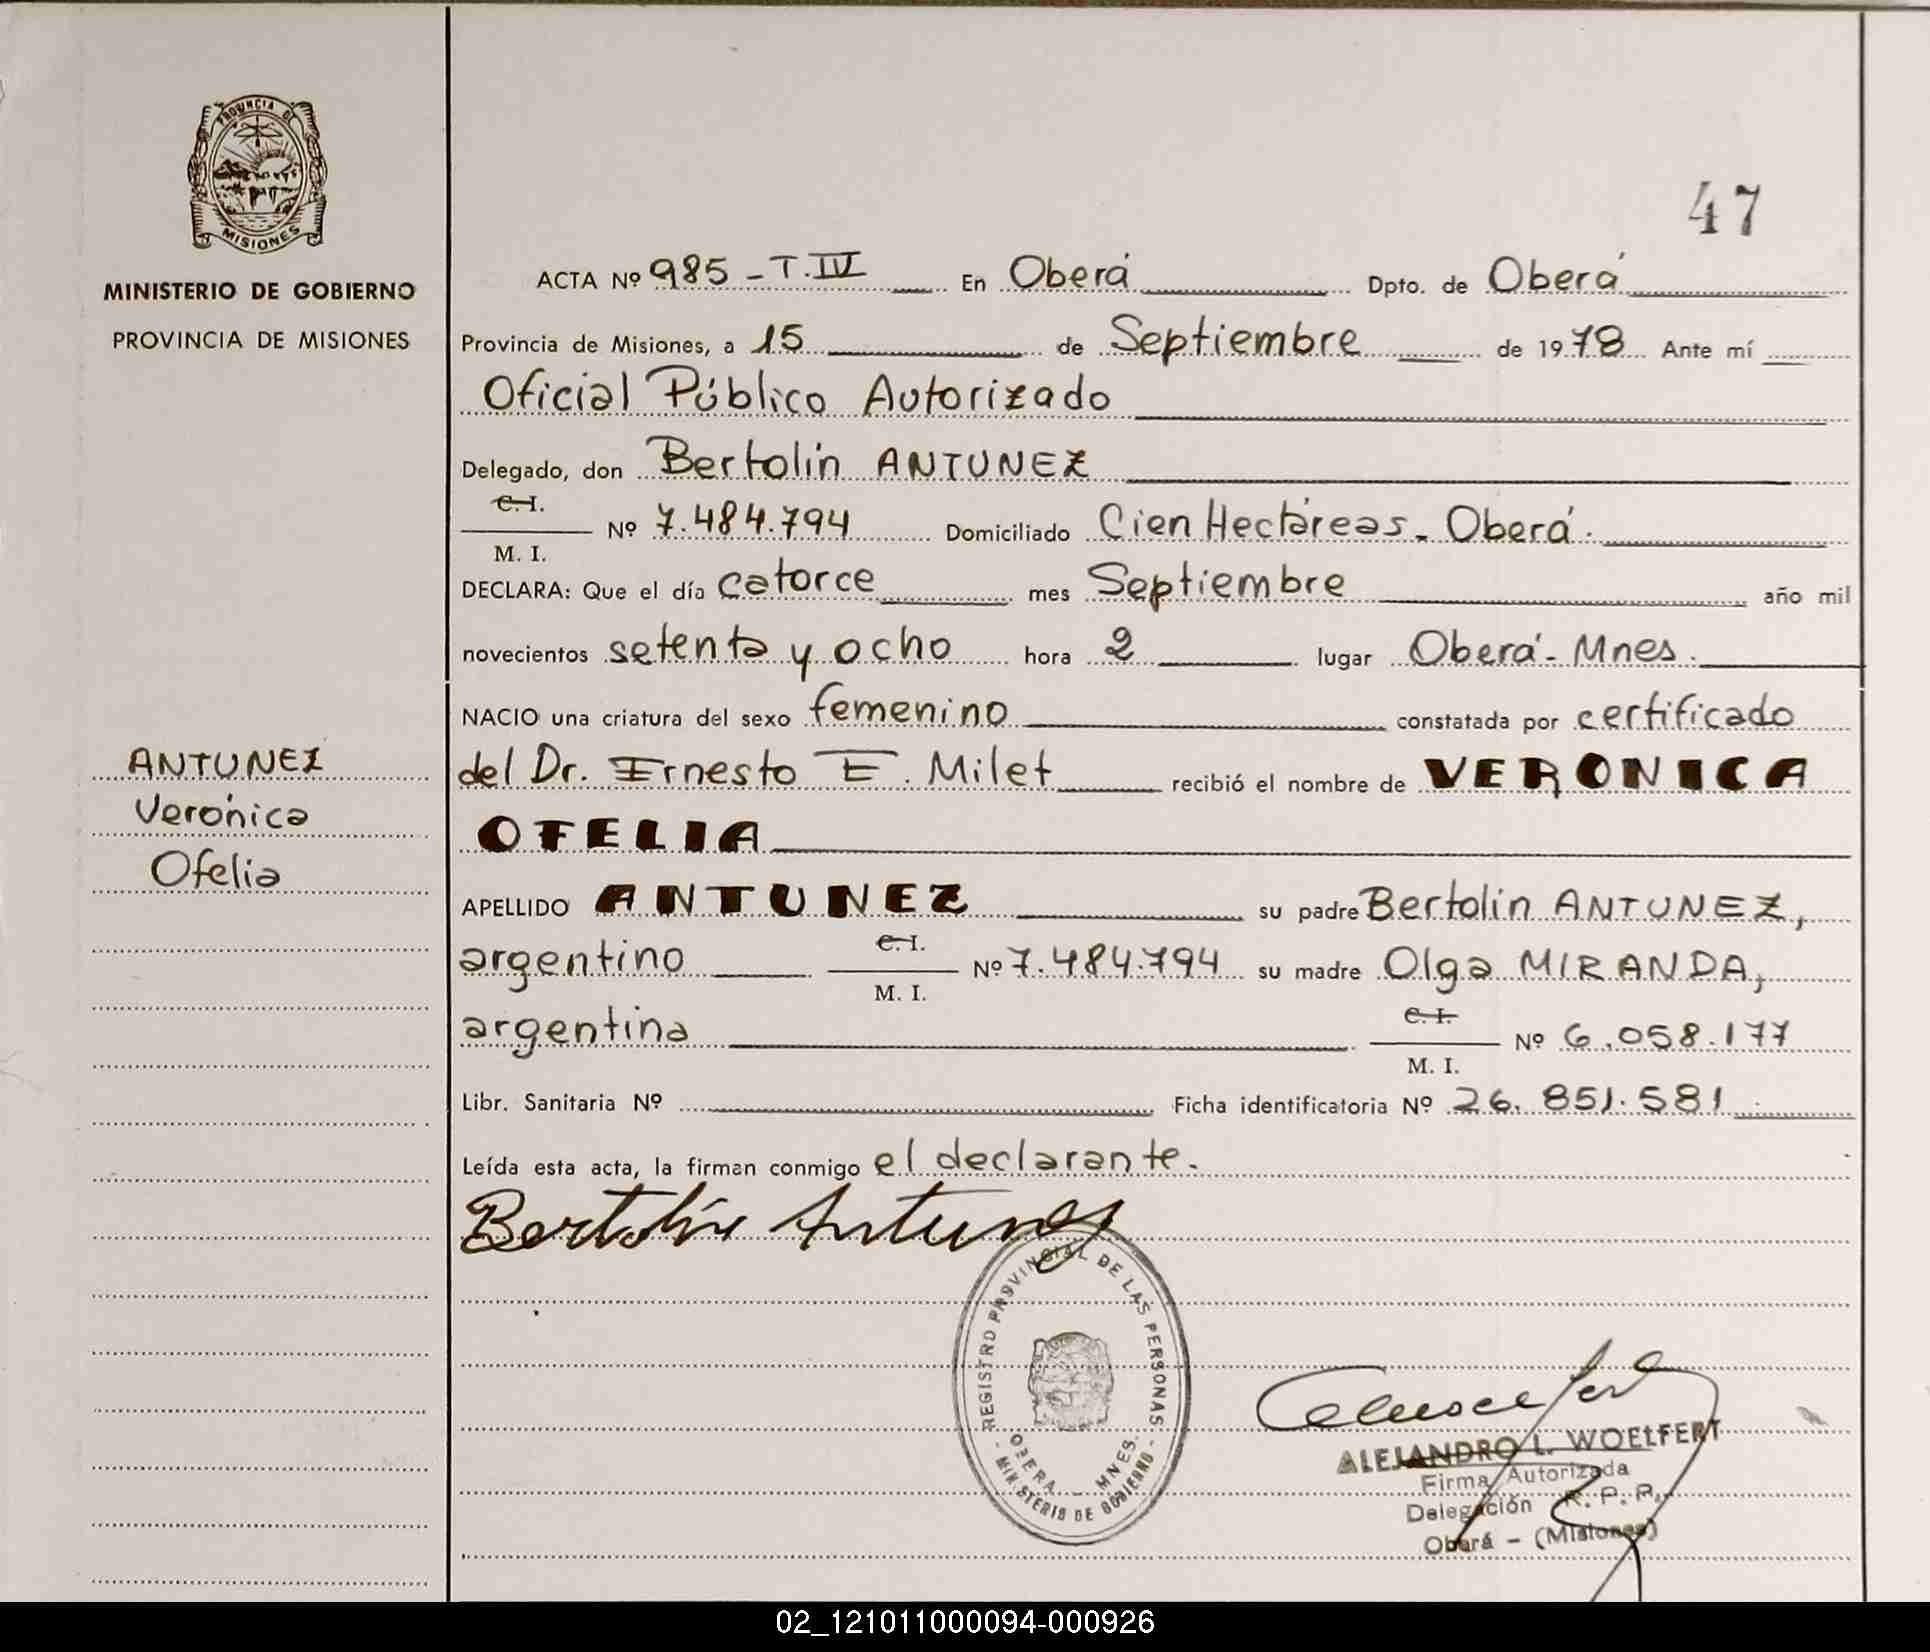 PROVINCIA DE
MISIONES
MINISTERIO DE GOBIERNO
PROVINCIA DE MISIONES
47
ACTA Nº 985 - T. IV En Oberá Dpto. de Oberá
Provincia de Misiones, a 15 de Septiembre de 1978 Ante mí
Oficial Público Autorizado
Delegado, don Bertolin ANTUNEZ
C. I.
Nº 7.484.794 Domiciliado Cien Hectáreas - Oberá.
M. I.
DECLARA: Que el día catorce mes Septiembre año mil
novecientos setenta y ocho hora 2 lugar Oberá - Mnes.
NACIO una criatura del sexo femenino constatada por certificado
ANTUNEZ
del Dr. Ernesto E. Milet recibió el nombre de VERONICA
Verónica
OFELIA
Ofelia
APELLIDO ANTUNEZ su padre Bertolin ANTUNEZ,
C. I.
argentino Nº 7.484.794 su madre Olga MIRANDA,
M. I.
C. I.
argentina Nº 6.058.177
M. I.
Libr. Sanitaria Nº Ficha identificatoria Nº 26.851.581
Leída esta acta, la firman conmigo el declarante.
Bertolin Antunez
REGISTRO PROVINCIAL DE LAS PERSONAS
OBERA - MNES.
- MINISTERIO DE GOBIERNO -
ALEJANDRO L. WOELFERT
Firma Autorizada
Delegación R. P. P.
Oberá - (Misiones)
02_121011000094-000926